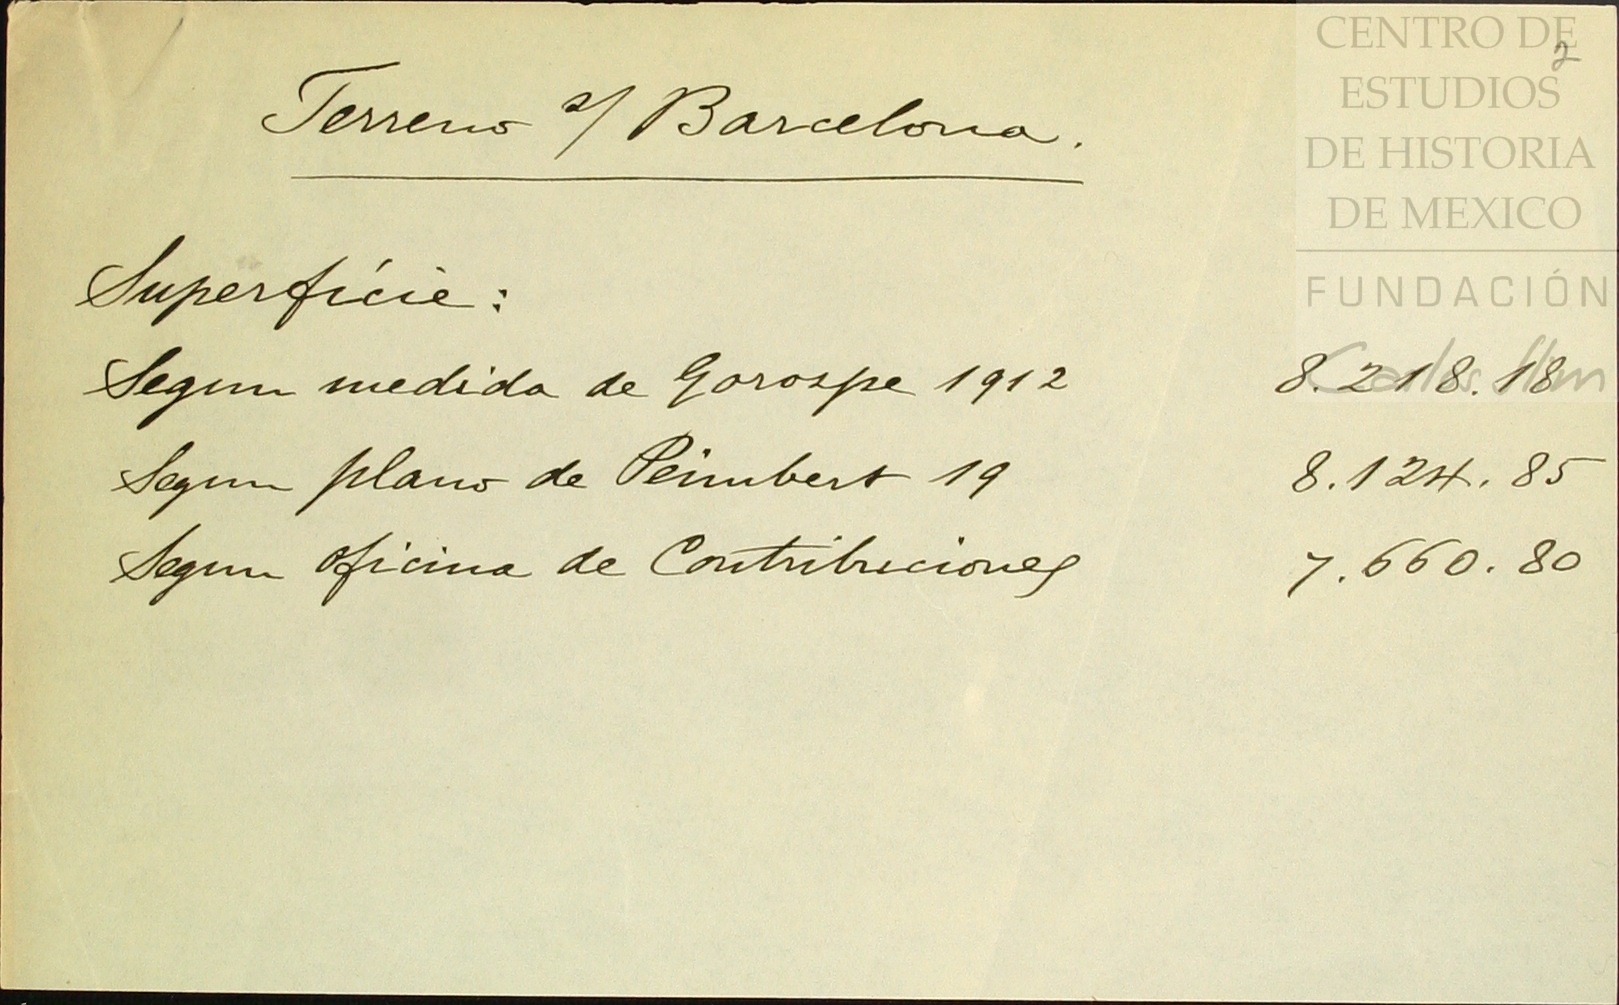 CENTRO DE
ESTUDIOS
DE HISTORIA
DE MEXICO
FUNDACIÓN
Carlos Slim
2
Terreno s/ Barcelona.
Superfície:
Segun medida de Gorospe 1912 8.218.18
Segun plano de Peimbert 19 8.124.85
Segun oficina de Contribuciones 7.660.80